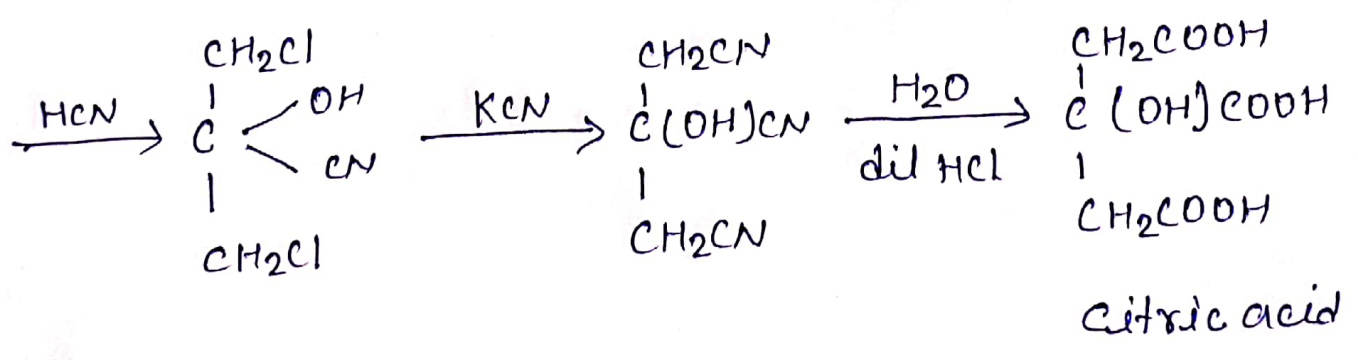 HCN → CH2Cl - C (OH) (CN) - CH2Cl
KCN → CH2CN - C(OH)CN - CH2CN
H2O dil HCl → CH2COOH - C(OH)COOH - CH2COOH
Citric acid